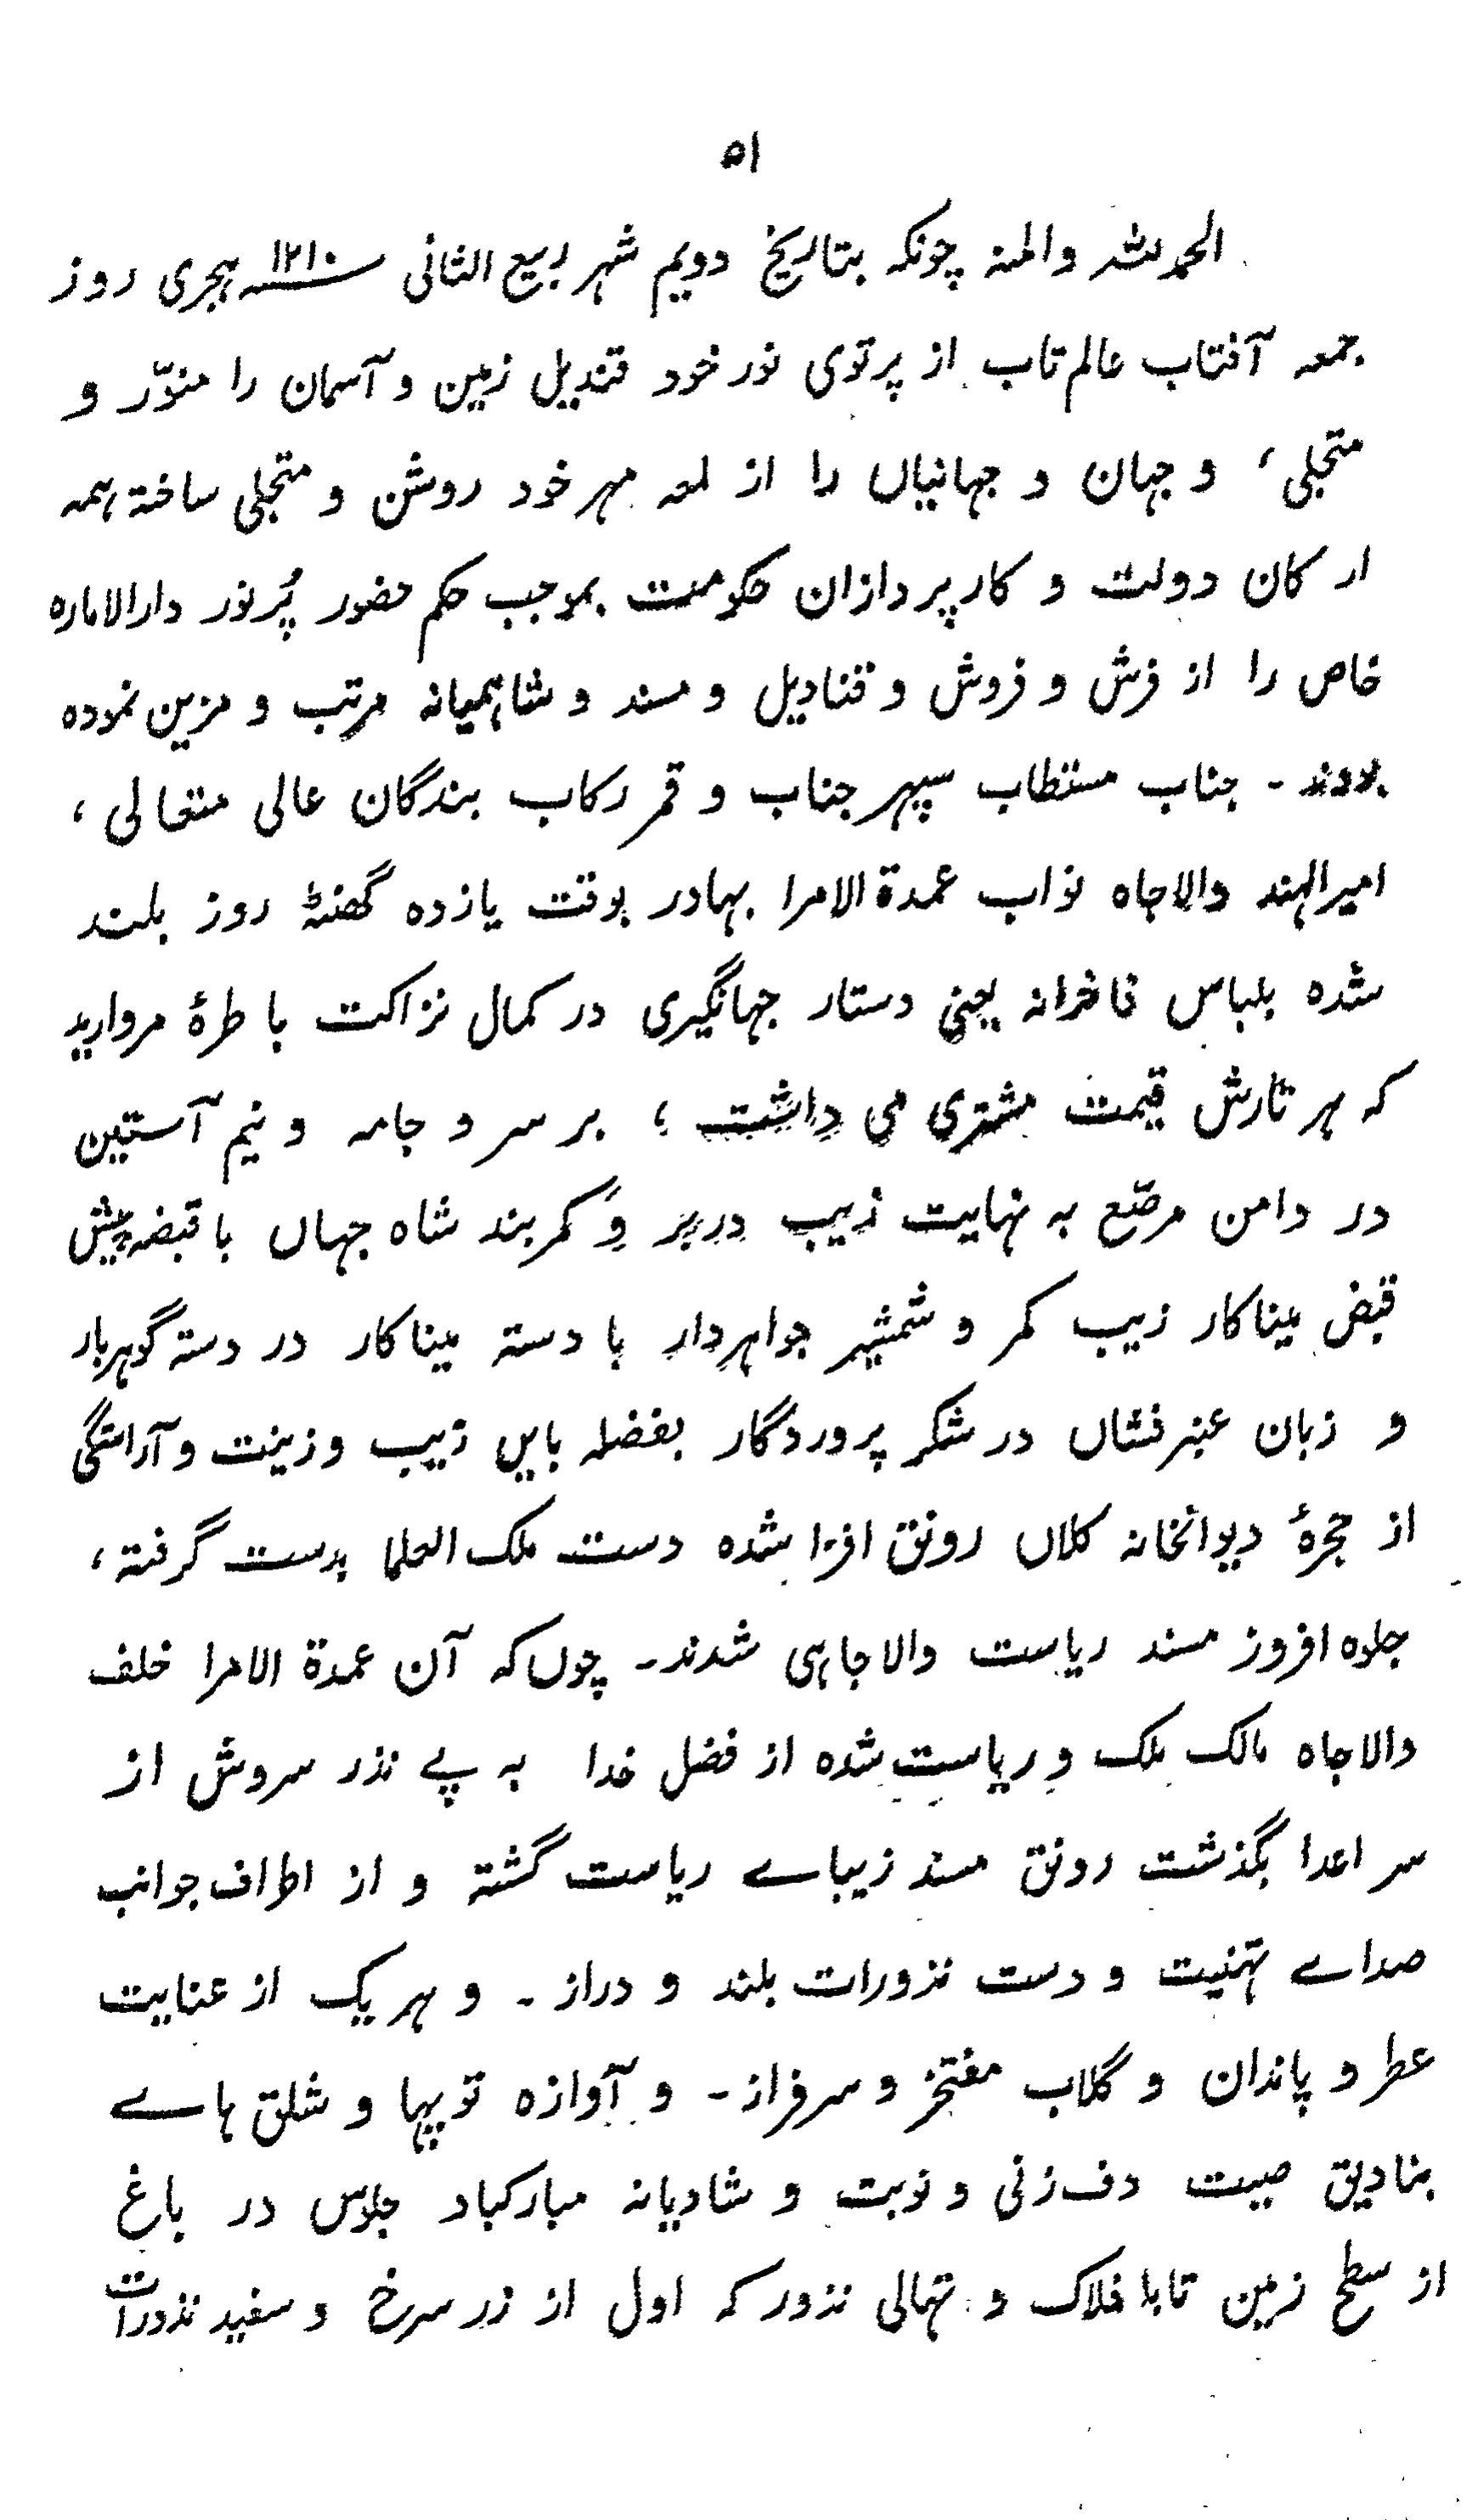 ۵۱
الحمد للہ والمنہ چونکہ بتاریخ دویم شہر ربیع الثانی ۱۲۱۰؁ ہجری روز
جمعہ آفتاب عالم تاب از پرتوی نور خود قندیل زمین و آسمان را منوّر و
متجلی، و جہان و جہانیاں را از لمعہ مہر خود روشن و متجلی ساختہ ہمہ
ارکان دولت و کارپردازان حکومت بموجب حکم حضور پُرنور دارالامارہ
خاص را از فرش و فروش و قنادیل و مسند و شاہمیانہ مرتب و مزین نمودہ
بودند ۔ جناب مستطاب سپہر جناب و قمر رکاب بندگان عالی متعالی،
امیرالہند والاجاہ نواب عمدۃ الامرا بہادر بوقت یازدہ گھنٹہ روز بلند
شدہ بلباس فاخرانہ یعنی دستار جہانگیری در کمال نزاکت با طرۂ مروارید
کہ ہر تارش قیمت مشتری می داشت؛ بر سر و جامہ و نیم آستین
در دامن مرصّع بہ نہایت زیب دربر و کمربند شاہ جہاں با قبضہ پیش
قبض میناکار زیب کمر و شمشیر جواہردار با دستہ میناکار در دستہ گوہربار
و زبان عنبرفشاں در شکر پروردگار بفضلہ بایں زیب و زینت و آراستگی
از حجرۂ دیوانخانہ کلاں رونق افزا شدہ دست ملک العلما بدست گرفتہ،
جلوہ افروز مسند ریاست والاجاہی شدند ۔ چوں کہ آن عمدۃ الامرا خلف
والاجاہ مالک ملک و ریاست شدہ از فضل خدا بہ پے نذر سروش از
سر اعدا بگذشت رونق مسند زیباے ریاست گشتہ و از اطراف جوانب
صداے تہنیت و دست نذورات بلند و دراز ۔ و ہر یک از عنایت
عطر و پاندان و گلاب مفتخر و سرفراز ۔ و آوازہ توپہا و شلق ہاے
بنادیق صیت دف زنی و نوبت و شادیانہ مبارکباد جلوس در باغ
از سطح زمین تابا فلاک و تہالی نذور کہ اول از زر سرخ و سفید نذورات